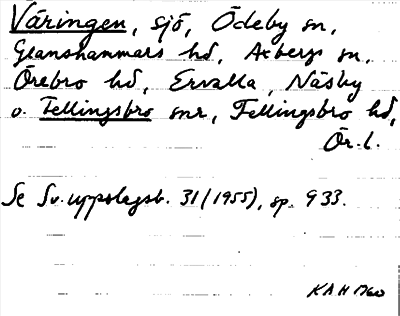 Väringen, sjö, Ödeby sn,
Glanshammars hd, Axbergs sn,
Örebro hd, Ervalla, Näsby
o. Fellingsbro snr, Fellingsbro hd,
Ör. l.
Se Sv. uppslagsb. 31 (1955), sp. 933.
KAH 1960